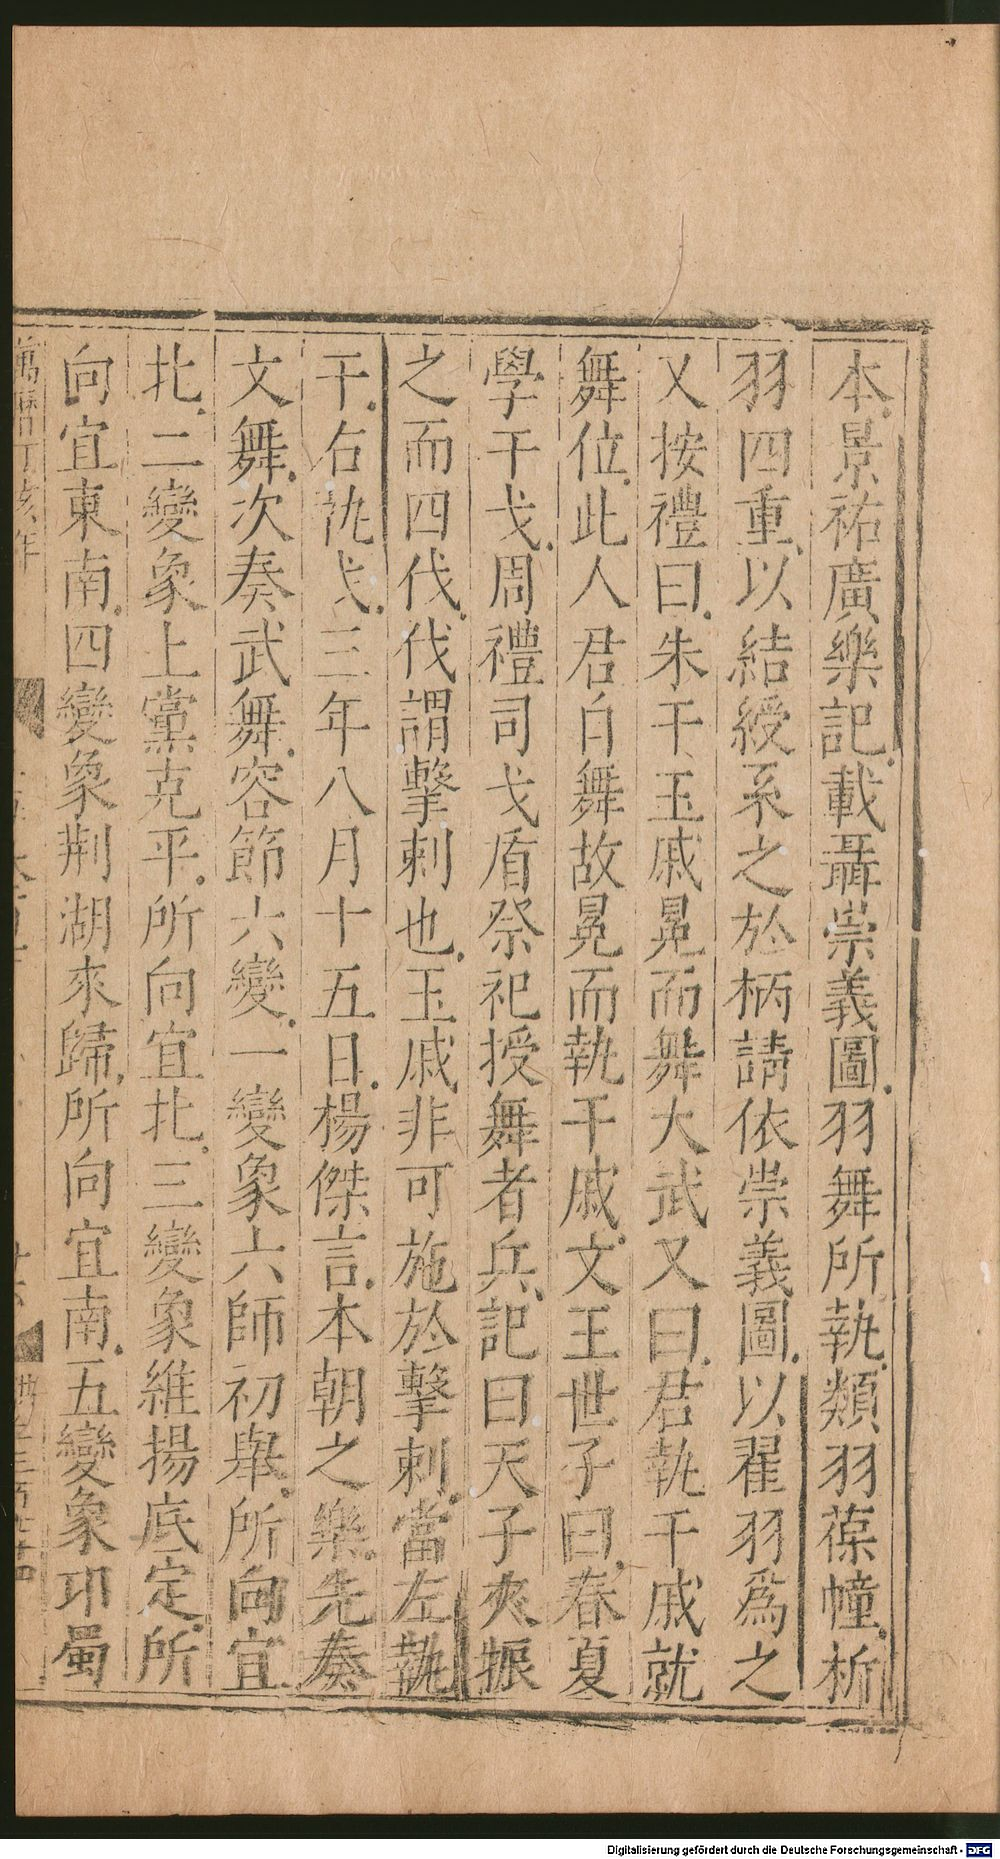 本景祐廣樂記載聶崇義圖羽舞所執類羽葆幢析
羽四重以結綬系之於柄請依崇義圖以翟羽爲之
又按禮曰朱干玉戚冕而舞大武又曰君執干戚就
舞位此人君自舞故冕而執干戚文王世子曰春夏
學干戈周禮司戈盾祭祀授舞者兵記曰天子夾振
之而四伐伐謂擊刺也玉戚非可施於擊刺當左執
干右執戈三年八月十五日楊傑言本朝之樂先奏
文舞次奏武舞容節六變一變象六師初舉所向宜
北二變象上黨克平所向宜北三變象維揚底定所
向宜東南四變象荆湖來歸所向宜南五變象邛蜀
萬曆丁亥年
Digitalisierung gefördert durch die Deutsche Forschungsgemeinschaft - DFG